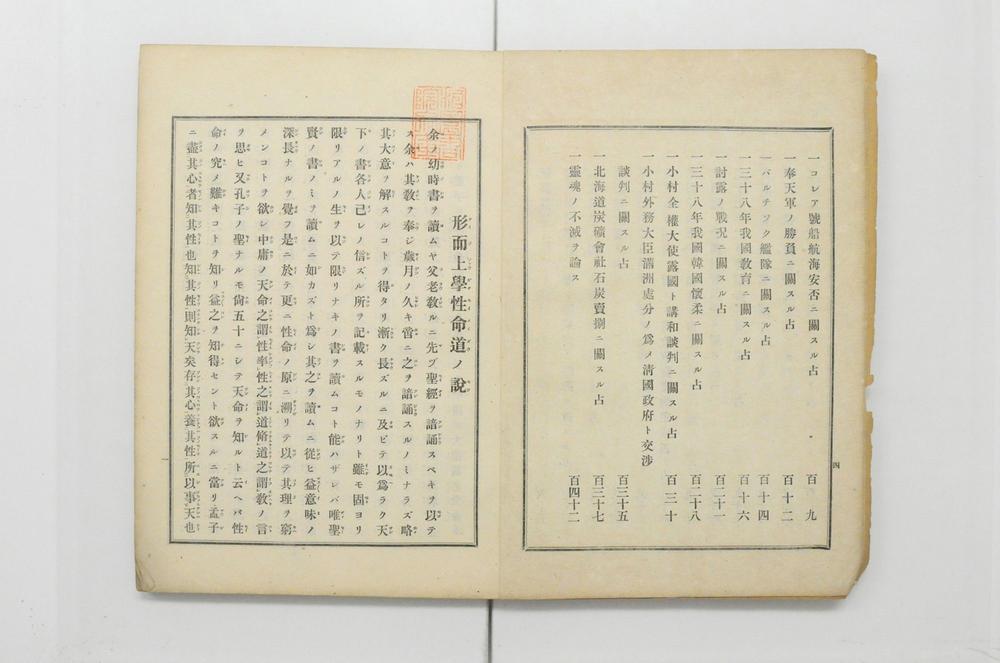 一コレア號船航海安否ニ關スル占 百九
一奉天軍ノ勝負ニ關スル占 百十二
一バルチック艦隊ニ關スル占 百十四
一三十八年我國教育ニ關スル占 百十六
一討露ノ戰況ニ關スル占 百二十一
一三十八年我國韓國懷柔ニ關スル占 百二十八
一小村全權大使露國ト講和談判ニ關スル占 百三十
一小村外務大臣滿洲處分ノ爲メ清國政府ト交渉
談判ニ關スル占 百三十五
一北海道炭礦會社石炭賣捌ニ關スル占 百三十七
一靈魂ノ不滅ヲ論ス 百四十二
四
形而上學性命道ノ說
余ノ幼時書ヲ讀ムヤ父老敎ルニ先ヅ聖經ヲ諳誦スベキヲ以テ
ス余ハ其敎ヲ奉ジ歲月ノ久キ啻ニ之ヲ諳誦スルノミナラズ略
其大意ヲ解スルコトヲ得タリ漸ク長ズルニ及ビテ以爲ラク天
下ノ書各人己レノ信ズル所ヲ記載スルモノナリト雖モ固ヨリ
限リアルノ生ヲ以テ限リナキノ書ヲ讀ムコト能ハザレバ唯聖
賢ノ書ノミヲ讀ムニ如カズト爲シ其之ヲ讀ムニ從ヒ益意味ノ
深長ナルヲ覺フ是ニ於テ更ニ性命ノ原ニ溯リテ以テ其理ヲ窮
メンコトヲ欲シ中庸ノ天命之謂性率性之謂道脩道之謂敎ノ言
ヲ思ヒ又孔子ノ聖ナルモ尙五十ニシテ天命ヲ知ルト云ヘバ性
命ノ究メ難キコトヲ知リ益之ヲ知得セント欲スルニ當リ孟子
ニ盡其心者知其性也知其性則知天矣存其心養其性所以事天也